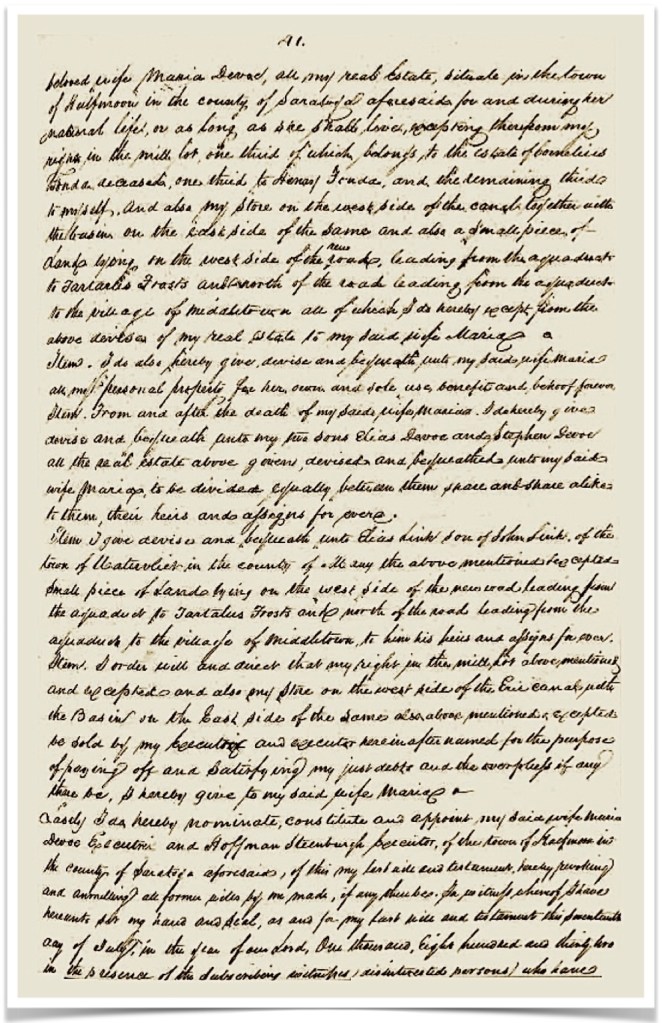 91.
beloved wife Maria Devoe, all my real Estate, situate in the town
of Halfmoon in the county of Saratoga aforesaid for and during her
natural life, or as long as she shall live, excepting therefrom my
right in the mill lot, one third of which belongs to the estate of Cornelius
Fonda deceased, one third to Henry Fonda, and the remaining third
to myself, And also my Store on the west side of the canal together with
the basin on the east side of the same and also a small piece of
Land lying on the west side of the new road, leading from the aquaduct
to Frosts and north of the road leading from the aquaduct
to the village of Middletown all of which I do hereby except from the
above devises of my real Estate to my said wife Maria
Item. I do also hereby give, devise and bequeath unto my said wife Maria
all my personal property for her own and sole use, benefit and behoof forever
Item. From and after the death of my said wife, Maria. I do hereby give
devise and bequeath unto my two sons Elias Devoe and Stephen Devoe
all the real estate above given, devised and bequeathed unto my said
wife Maria, to be divided equally between them share and share alike
to them, their heirs and assigns for ever.
Item I give devise and bequeath unto Elias Link son of John Link of the
town of Watervliet in the county of the above mentioned & excepted
small piece of Land lying on the west side of the new road leading from
the aquaduct to Frosts and north of the road leading from the
aquaduct to the village of Middletown, to him his heirs and assigns for ever.
Item. I order will and direct that my right in the mill lot above mentioned
and excepted and also my Store on the west side of the Erie canal with
the Basin on the East side of the same also above mentioned & excepted
be sold by my Executrix and executor hereinafter named for the purpose
of paying off and satisfying my just debts and the overplus if any
there be, I hereby give to my said wife Maria
Lastly I do hereby nominate, constitute and appoint my said wife Maria
Devoe Executrix and Hoffman Steenburgh Executor, of the town of Halfmoon in
the county of Saratoga aforesaid, of this my last will and testament, hereby revoking
and annulling all former wills by me made, if any there be. In witness whereof I have
hereunto set my hand and seal, as and for my last will and testament this seventeenth
day of July, in the year of our Lord, One thousand, Eight hundred and thirty two
in the presence of the subscribing witnesses (disinterested persons) who have